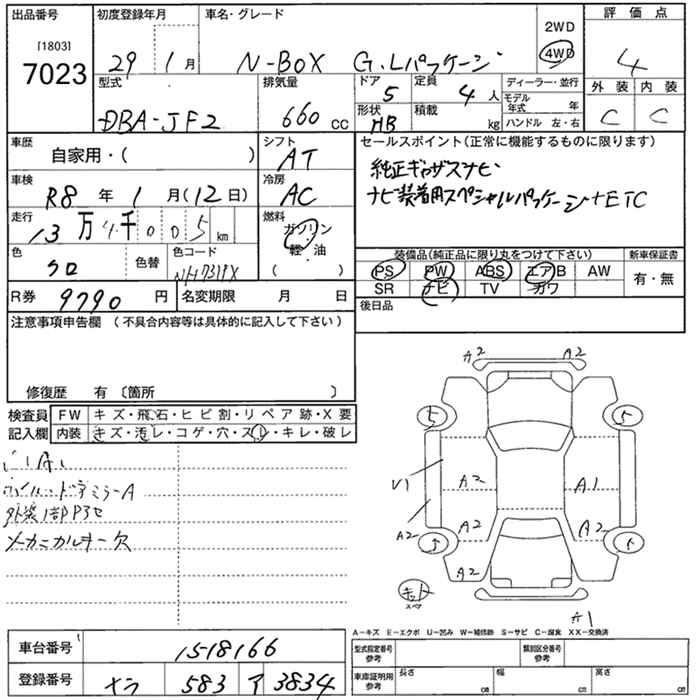 出品番号
[1803]
7023
初度登録年月
29 1月
車名・グレード
N-BOX G.Lパッケージ
2WD
4WD
評価点
4
外装 内装
C C
型式
DBA-JF2
排気量
660 cc
ドア
5
定員
4人
形状
HB
積載
kg
ディーラー・並行
モデル年式 年
ハンドル 左・右
車歴
自家用・( )
シフト
AT
車検
R8年 1月(12日)
冷房
AC
走行
13万4千005km
燃料
ガソリン
軽・油
( )
色
クロ
色替
色コード
NH731PX
R券 9790円
名変期限 月 日
セールスポイント(正常に機能するものに限ります)
純正ギャザスナビ
ナビ装着用スペシャルパッケージ+ETC
装備品(純正品に限り丸をつけて下さい)
PS PW ABS エアB AW
SR ナビ TV カワ
新車保証書
有・無
後日品
注意事項申告欄(不具合内容等は具体的に記入して下さい)
修復歴 有〔箇所 〕
検査員記入欄
FW キズ・飛石・ヒビ割・リペア跡・X要
内装 キズ・汚レ・コゲ・穴・スレ・キレ・破レ
外装1部P3セ
メカニカルキー欠
A2 A2
5 5
V1 A2 A1
A2 A2 A2
5 5
A2
スペア
A1
A-キズ E-エクボ U-凹み W-補修跡 S-サビ C-腐食 XX-交換済
車台番号 1518166
登録番号 583 3834
型式指定番号
参考
類別区分番号
参考
車庫証明用
参考
長さ cm
幅 cm
高さ cm